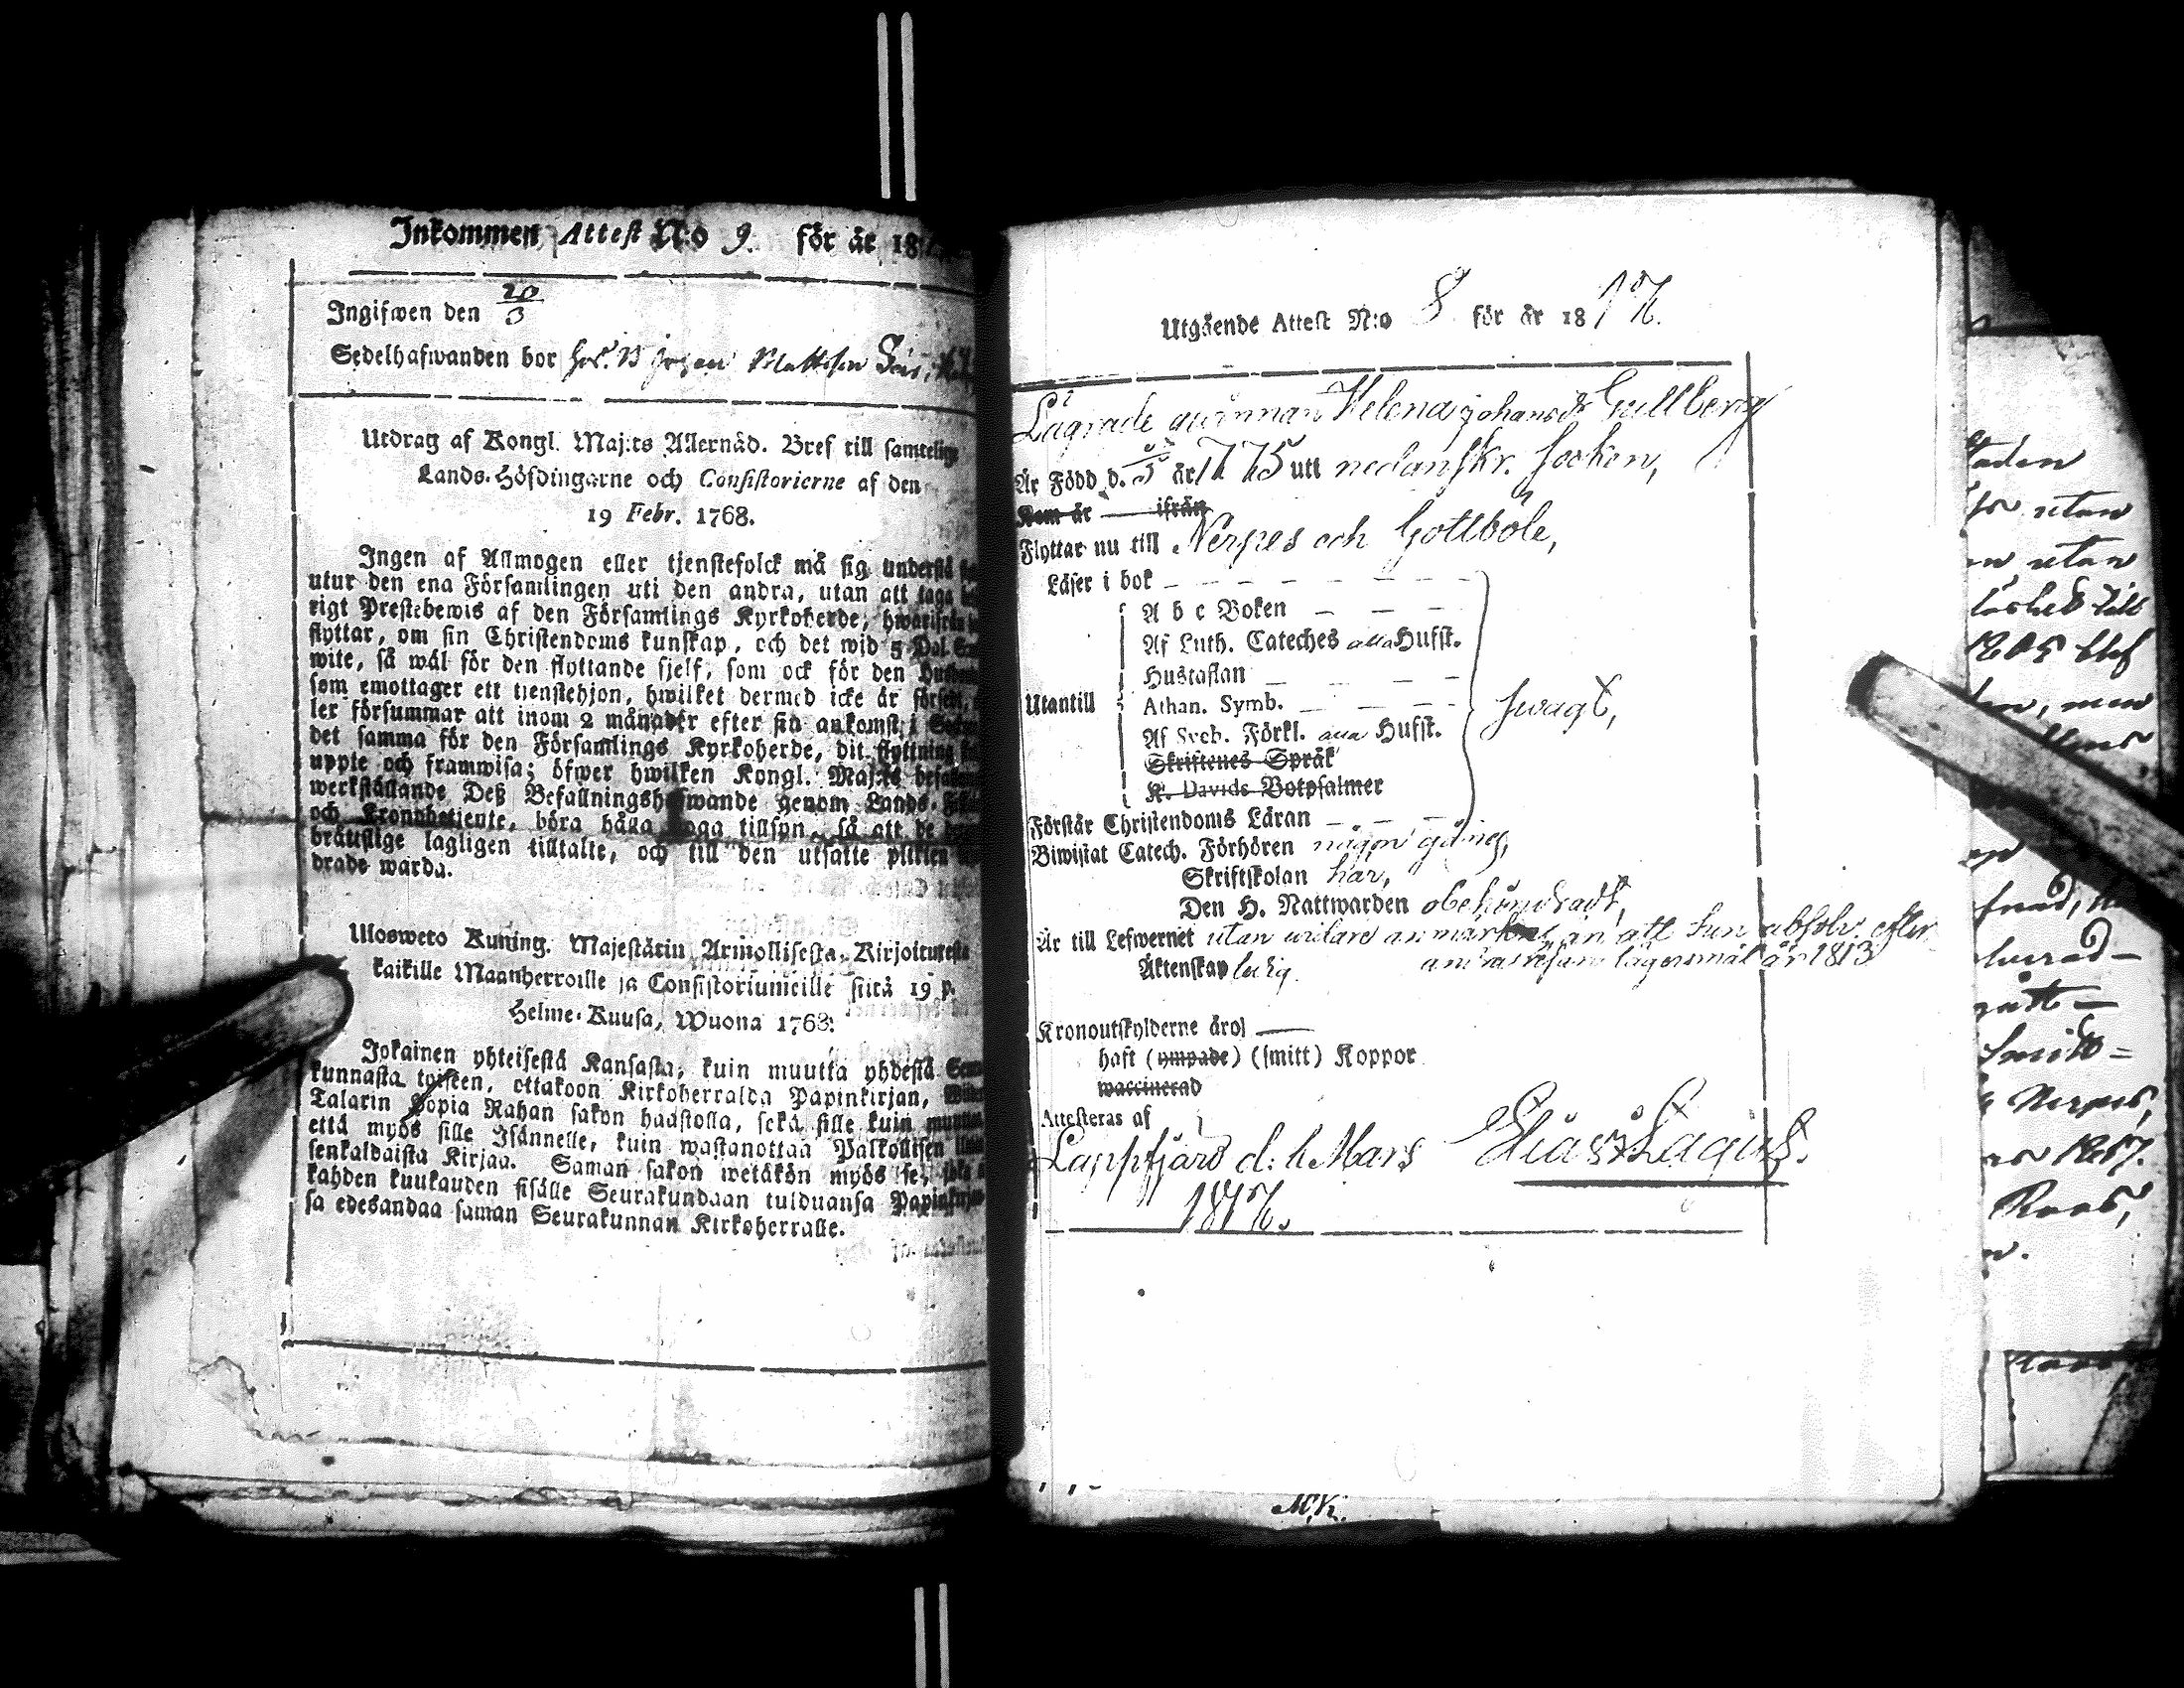 Inkommen Attest N:o 9. för år 18
Ingifwen den 20/3
Sedelhafwanden bor hos B. Johan Mattsson
Utdrag af Kongl. Maj:ts Allernåd. Bref till samtelige
Lands-Höfdingarne och Consistorierne af den
19 Febr. 1768.
Ingen af Allmogen eller tjenstefolck må sig understå
utur den ena Församlingen uti den andra, utan att taga
rigt Prestebewis af den Församlings Kyrkoherde, hwarifrån
flyttar, om sin Christendoms kunskap, och det wid 5 Dal. S
wite, så wäl för den flyttande sjelf, som ock för den Husbonde
som emottager ett tienstehjon, hwilket dermed icke är försedt,
ler försummar att inom 2 månader efter sin ankomst i
det samma för den Församlings Kyrkoherde, dit flyttning
uppte och framwisa; öfwer hwilken Kongl. Maj:ts befallning
werkställande Deß Befallningshafwande genom Lands-
och Kronobetjente, böra hålla noga tillsyn, så att de
bräuslige lagligen tilltalte, och till den utsatte plikten
drade warda.
Ulosweto Kuning. Majestätin Armollisesta Kirjoituxesta
kaikille Maanherroille ja Consistoriumeille siitä 19 p.
Helme-Kuusa, Wuona 1768.
Jokainen yhteisestä Kansasta, kuin muutta yhdestä Seura
kunnasta toiseen, ottakoon Kirkoherralda Papinkirjan,
Talarin Hopia Rahan sakon haastolla, sekä sille kuin muutta
että myös sille Isännelle, kuin wastanottaa Palkollisen ilman
senkaldaista Kirjaa. Saman sakon wetäkön myös se, joka
kahden kuukauden sisälle Seurakundaan tulduansa Papinkirjan
sa edesandaa saman Seurakunnan Kirkoherralle.
Utgående Attest N:o 8 för år 18
Lägrade qwinnan Helena Johansdr Gullberg
Är Född d. 5 år 1775 utt nedanskr. Socken,
Kom år — ifrån
Flyttar nu till Nerpes och Gottböle,
Läser i bok
A b c Boken
Af Luth. Cateches alla Hufst.
Hustaflan
Utantill Athan. Symb. swagt,
Af Sveb. Förkl. alla Hufst.
Skriftenes Språk
K. Davids Botpsalmer
Förstår Christendoms Läran
Biwistat Catech. Förhören någon gång,
Skriftskolan har,
Den H. Nattwarden obehindradt,
Är till Lefwernet utan widare anmärkn. än att hun absolv. efter
Äktenskap ledig. lägersmål år 1813
Kronoutskylderne äro —
haft (ympade) (smitt) Koppor
waccinerad
Attesteras af
Lappfjärd d. Mars Elias Lagus.
M.K.